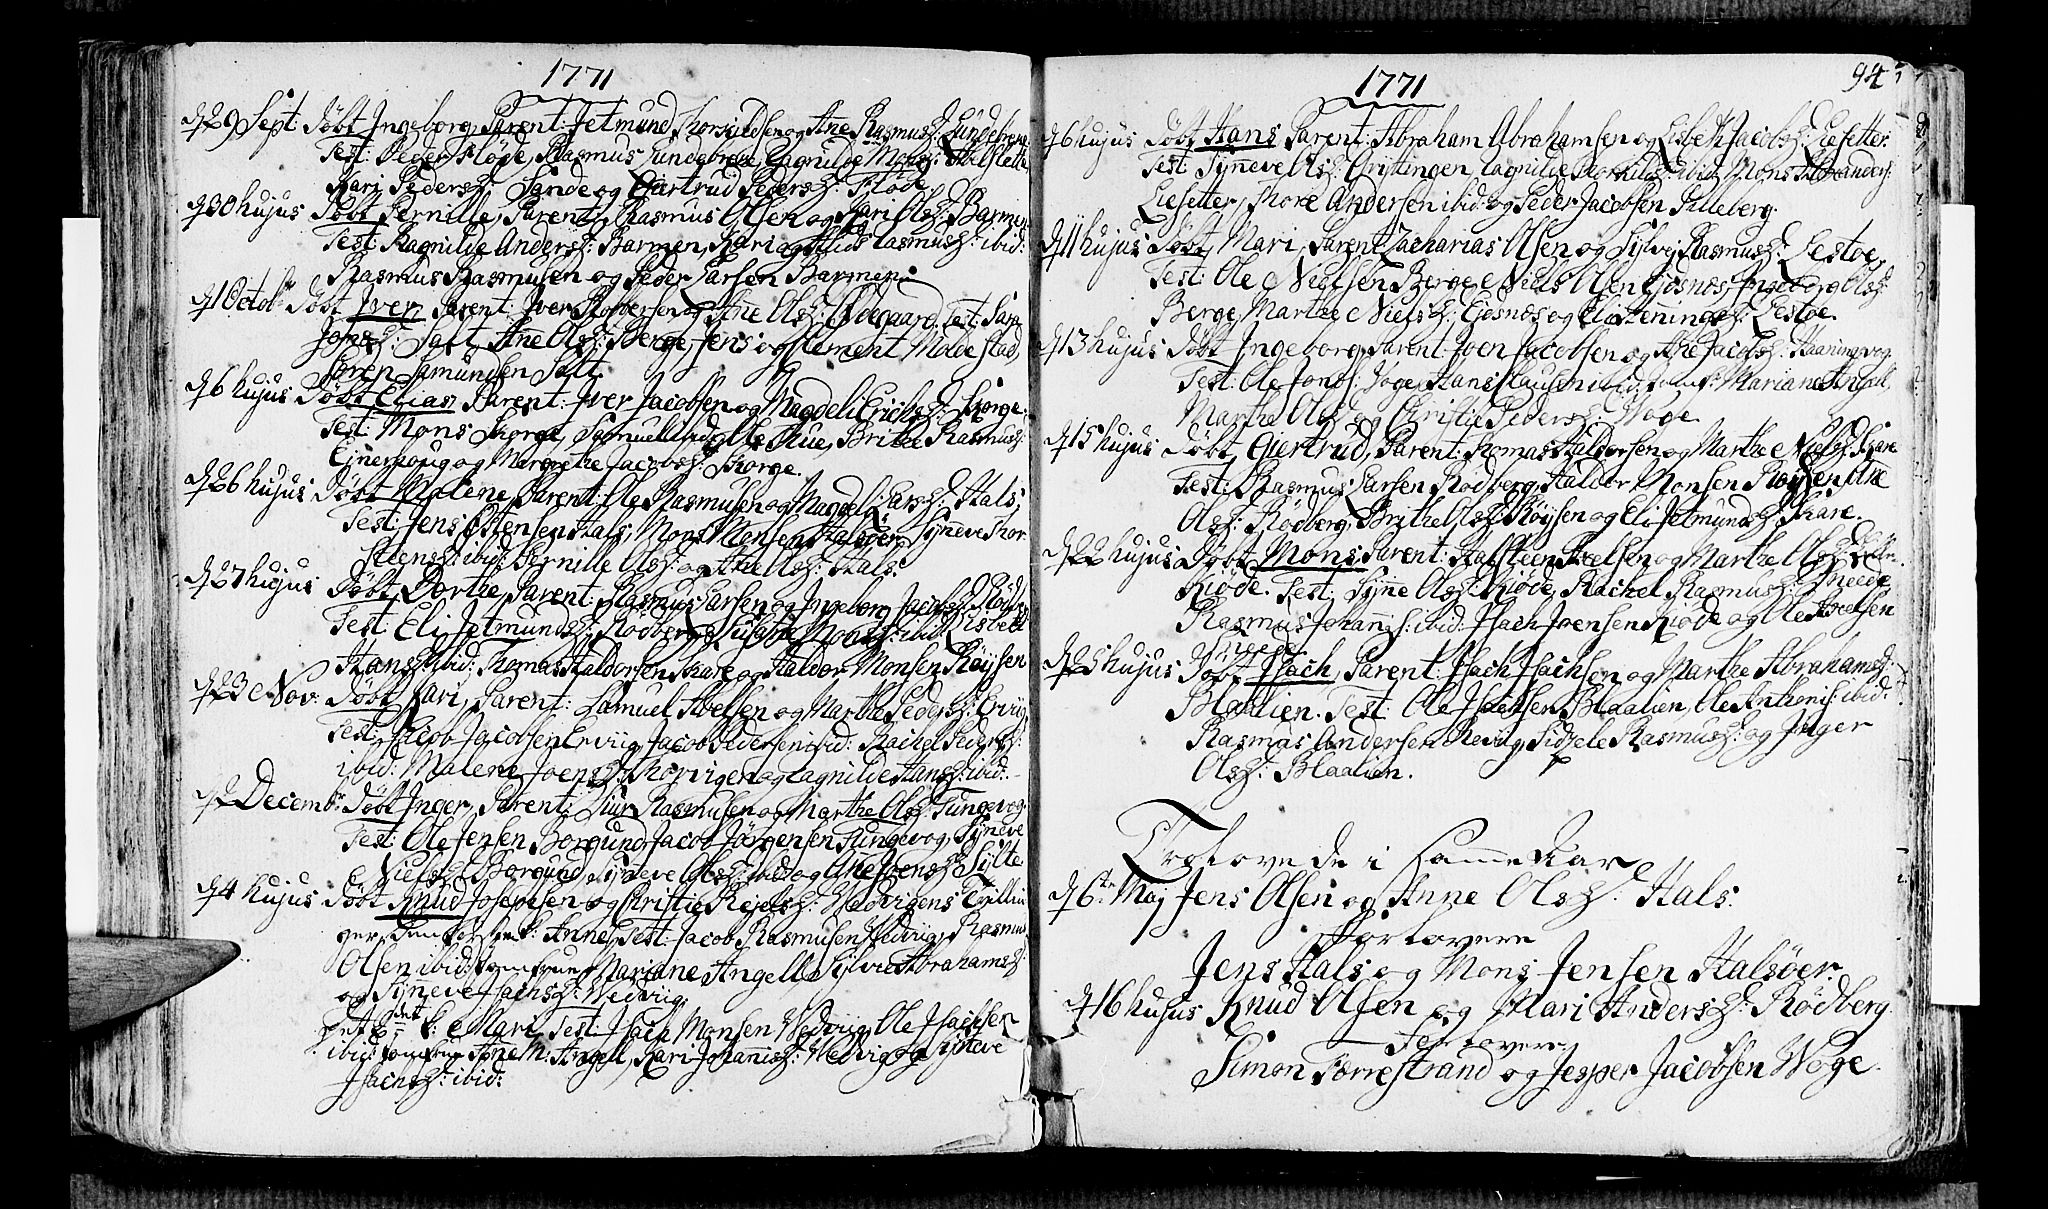 1771
d 29 Sept: Döbt Ingeborg, Parent: Jetmund Thorsiedsen og Ane Rasmusd: Lundebrege
Test: Peder Flöde, Rasmus Lundebrege, Ragnilde Monsd:
Kari Pedersd: Sande og Giertrud Pedersd: Flöde.
d 30 hujus Döbt Pernille, Parent: Rasmus Olsen og Kari Olsd: Barmen
Test: Ragnilde Andersd: Barmen, Kari og Rasmusd: ibid:
Rasmus Rasmusen og Peder Larsen Barmen.
d 1 Octob: Döbt Iver Parent: Iver Torbersen og Ane Olsd: Ødegaard. Test:
Jonsd: Salt, Ane Olsd: Berge, Jens og Clement Moldestad,
Sören Samundsen Salt.
d 6 hujus Döbt Elias Parent: Iver Jacobsen og Magdeli Erichsd: Skorge.
Test: Mons Skorge, Samuel ibid: Ole Rue, Brithe Rasmusd:
og Margrethe Jacobsd: Skorge.
d 26 hujus Döbt Malene Parent: Ole Rasmusen og Magdeli Larsd: Hals,
Test: Jens Ostensen Hals, Mons Monsen Halsöer, Synneve Thor-
steensd: ibid: Pernille Olsd: og Ane Olsd: Hals.
d 27 hujus Döbt Dorthe, Parent: Rasmus Larsen og Ingeborg Jacobsd: Rödberg
Test: Eli Jetmundsd: Rödberg, Susane Monsd: ibid: Lisbeth
Hansd: ibid: Thomas Haldorsen Skare og Haldor Monsen Röysen
d 23 Nov: Döbt Kari, Parent: Samuel Sivelsen og Marthe Pedersd: Erviig
Test: Jacob Jacobsen Erviig, Jacob Pedersen ibid: Rachel Pedersd:
ibid: Malene Joensd: Thorvigen og Ragnilde Hansd: ibid:
d 2 Decemb: Döbt Inger, Parent: Siur Rasmusen og Marthe Olsd: Tungevog.
Test: Ole Jensen Borgund, Jacob Jörgensen Tungevog, Syneve
Nielsd: Borgund, Syneve Olsd: ibid: og Ane Joensd: Sylte
d 4 hujus Döbt Knud Josephsen og Christie Rejelsd: Wedvigens Tvillin-
ger, den förste k: Anne, Test: Jacob Rasmusen Wedviig, Rasmus
Olsen ibid: Jomfrue Mariane Angell Sylvia Abrahamsd:
og Syneve Isachsd: Wedviig.
Det 2det k: Mari, Test: Isach Monsen Wedviig, Ole Isachsen
ibid: Jomfrue Ane M: Angell, Kari Johannisd: Wedvig og Syneve
Isachsd: ibid:
1771
94
d 6 hujus Döbt Hans Parent: Abraham Abrahamsen og Lisbeth Jacobsd: Liesetter.
Test: Synneve Olsd: Grittingen, Ragnilde Thorkilsd: ibid: Mons Anders:
Liesetter, Thore Andersen ibid: og Peder Jacobsen Silleberg.
d 11 hujus Döbt Mari, Parent: Zacharias Olsen og Sylve Rasmusd: Lestoe,
Test: Ole Nielsen Berge, Niels Olsen Giosnös, Ingeborg Olsd:
Berge, Marthe Nielsd: Giosnös og Eli Henningsd: Lestoe.
d 13 hujus Döbt Ingeborg, Parent: Joen Jacobsen og Ane Jacobsd: Haaningvog
Test: Ole Jons: Voge, Hans Clausen ibid: Jomf: Mariane Angell,
Marthe Olsd: og Christie Pedersd: Woge.
d 15 hujus Döbt Giertrud, Parent: Thomas Haldorsen og Marthe Nielsd: Skare
Test: Rasmus Larsen Rödberg, Haldor Monsen Röysen, Ane
Olsd: Rödberg, Brithe Olsd: Röysen og Eli Jetmundsd: Skare.
d 22 hujus Döbt Mons Parent: Halsteen Axelsen og Marthe Olsd:
Kiöde. Test: Syne Olsd: Kiöde, Rachel Rasmusd: Sneede
Rasmus Johans: ibid: Isach Joensen Kiöde og Ole Axelsen
Sneede.
d 25 hujus Döbt Isach, Parent: Isach Isachsen og Marthe Abrahamsd:
Blaalien. Test: Ole Isachsen Blaalien, Ole Anthonis: ibid:
Rasmus Andersen Reviig, Sidsele Rasmusd: og Inger
Olsd: Blaalien.
Trolovede i samme Aar
d 6te Maj Jens Olsen og Anne Olsd: Hals:
Forlovere
Jens Hals og Mons Jensen Halsöer.
d 16 hujus Knud Olsen og Mari Andersd: Rödberg.
Forlovere
Simon Torrestrand og Jesper Jacobsen Woge.